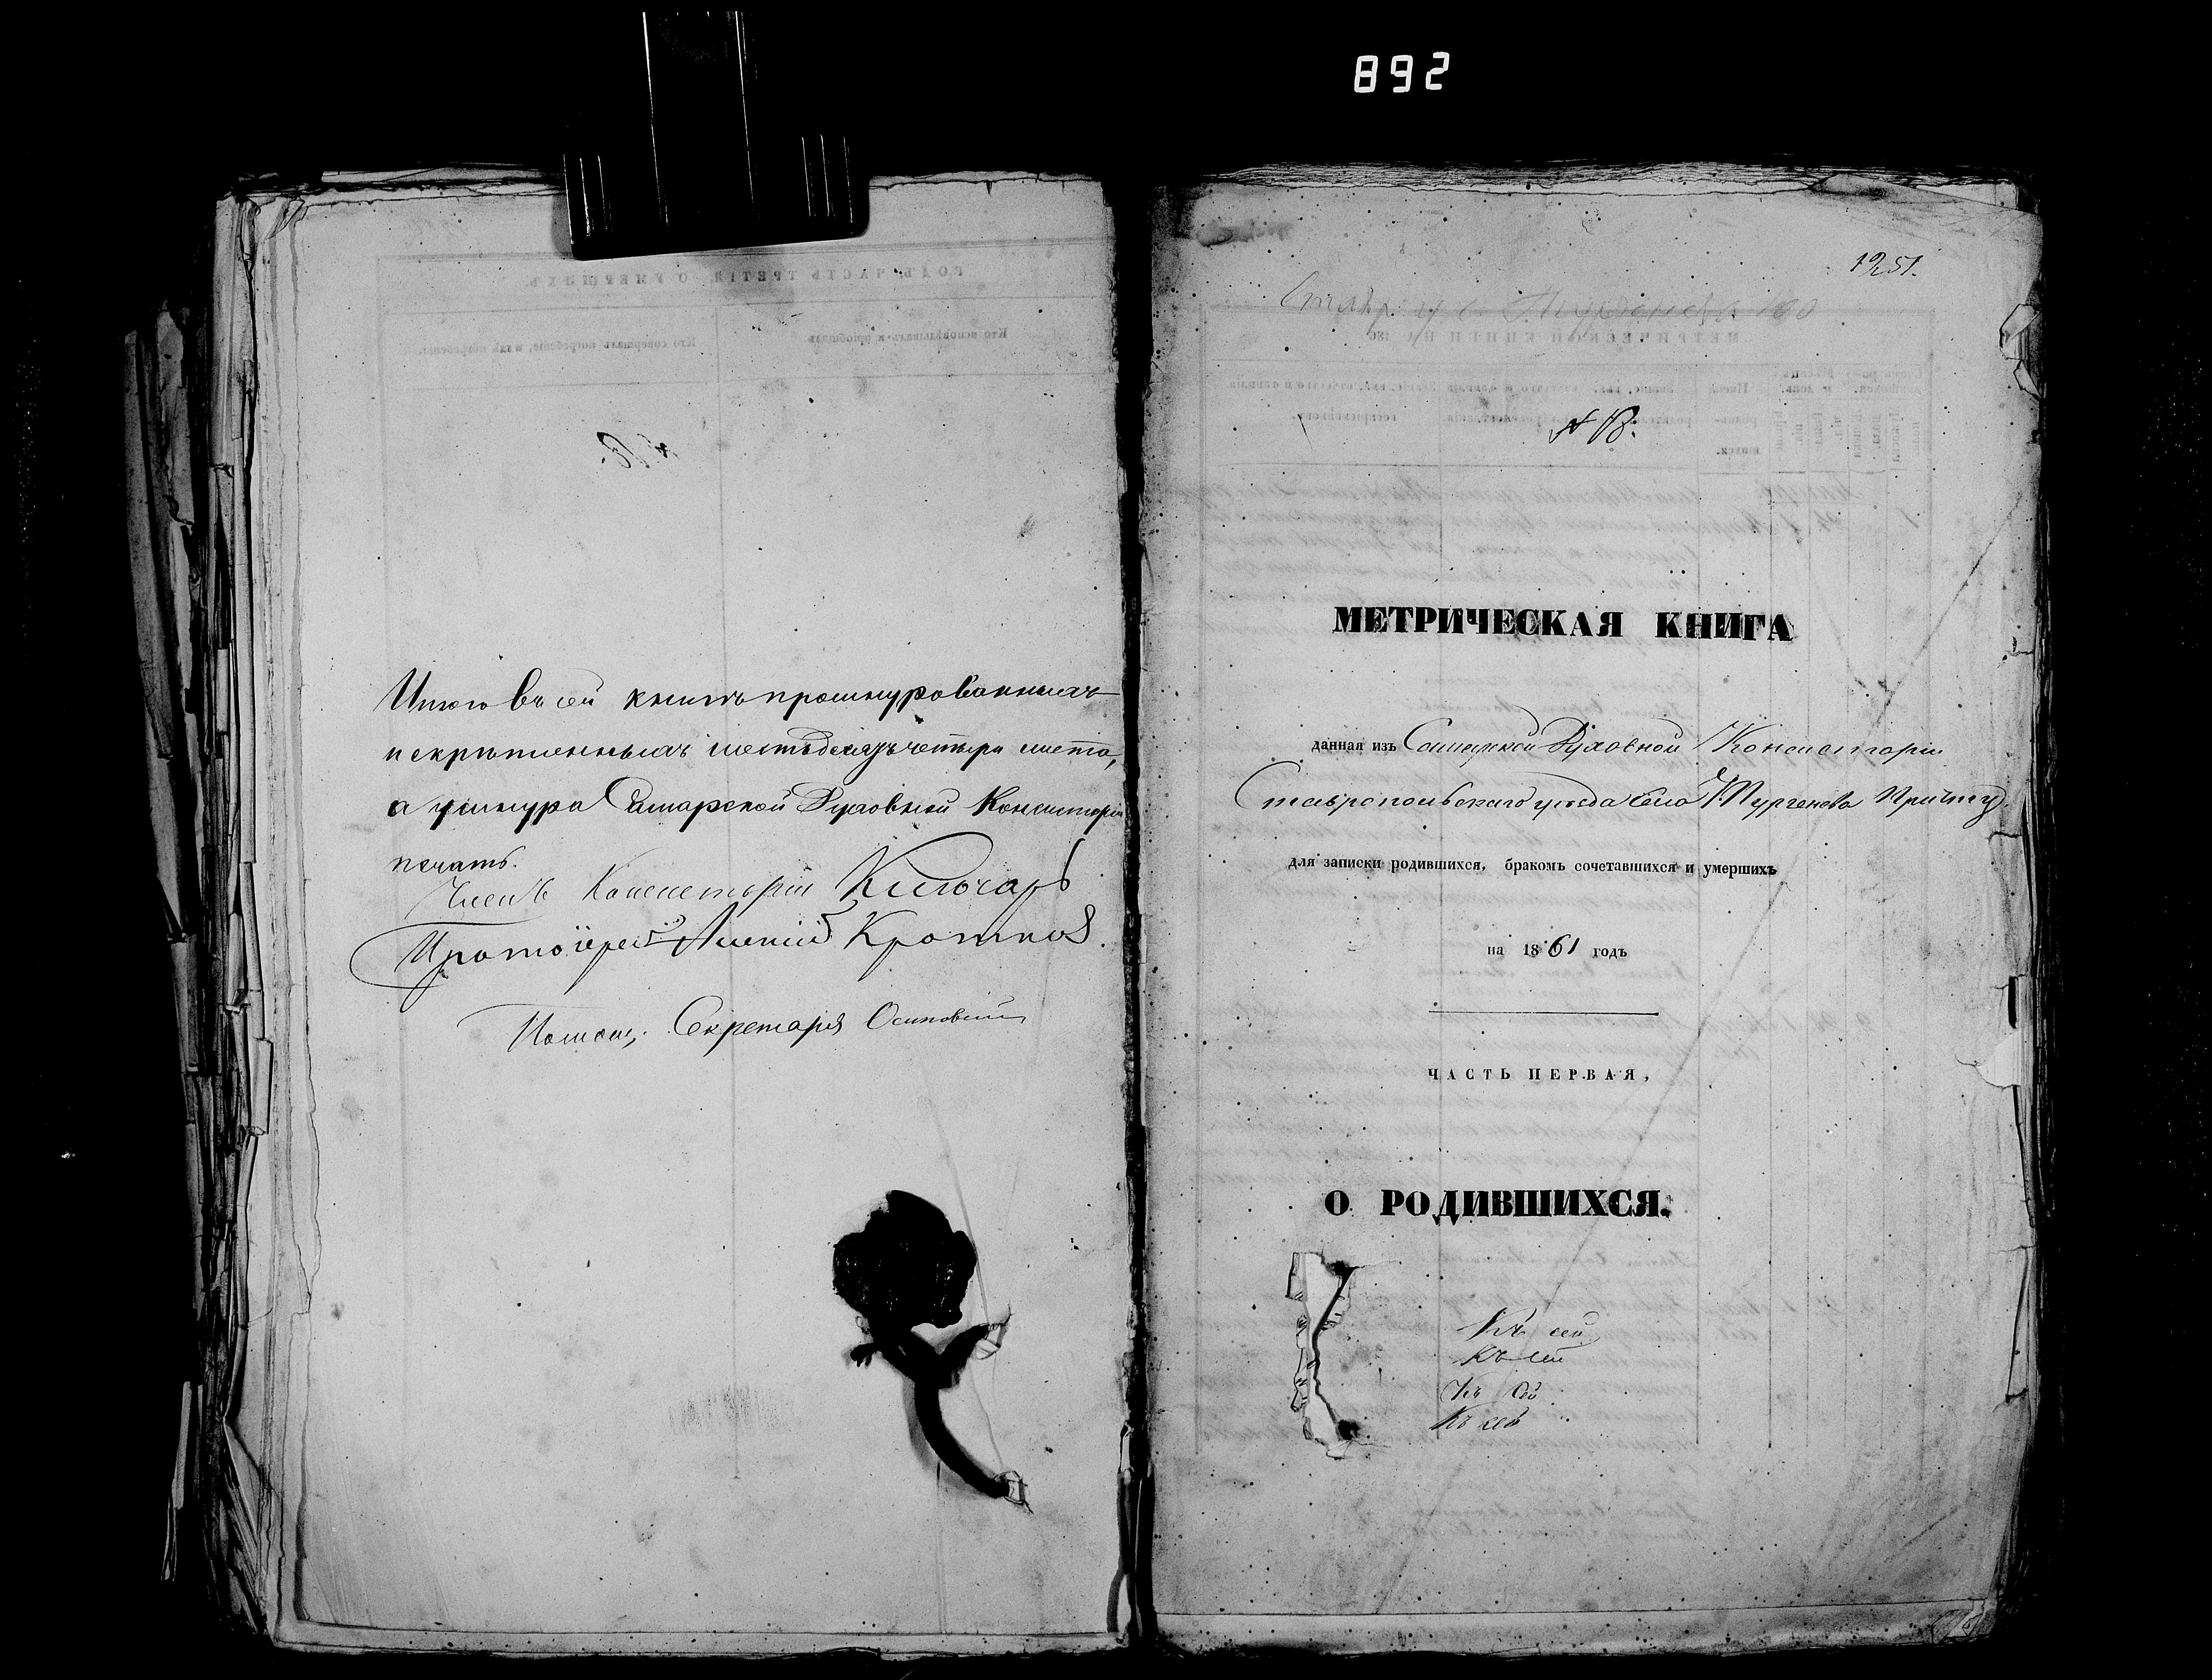 892
Итого въ сей книгѣ прошнурованныхъ
и скрѣпленныхъ шестьдесятъ четыре листа,
а у шнура Самарской Духовной Консисторіи
печать.
Членъ Консисторіи Ключарь
Протоіерей Алексій Кротков.
Помощ. Секретаря Осиповскій
1251.
Ставр. у. с. Тургенева
N 18.
МЕТРИЧЕСКАЯ КНИГА
данная изъ Самарской Духовной Консисторіи
Ставропольскаго уѣзда села Тургенева Причту
для записки родившихся, бракомъ сочетавшихся и умершихъ
на 1861 годъ
ЧАСТЬ ПЕРВАЯ,
О РОДИВШИХСЯ.
Къ сей
Къ сей
Къ сей
Къ сей